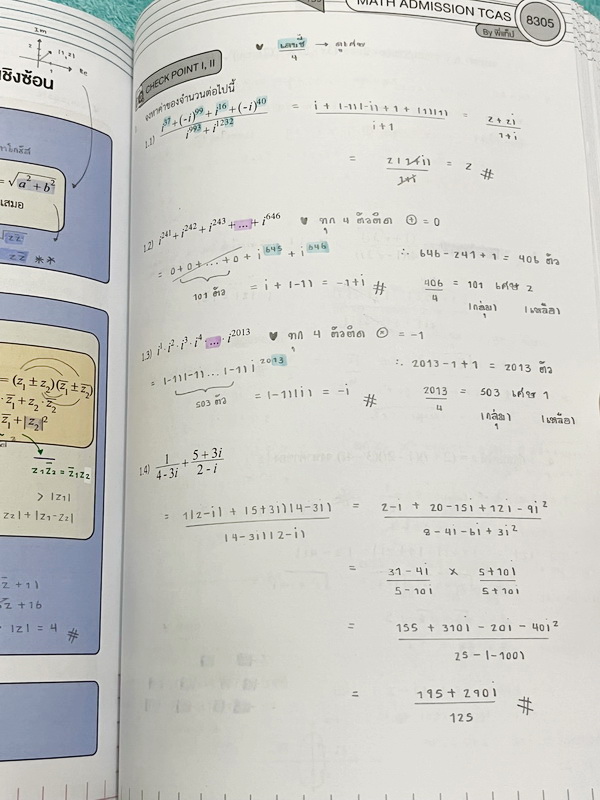 MATH ADMISSION TCAS
8305
By พี่แท็ป
Im
(1,2)
Re
ชิงซ้อน
= √(a² + b²)
เสมอ
= (z₁ ± z₂)(z̄₁ ± z̄₂)
z₁z̄₂ = z̄₁z₂
> |z₁|
z₂| + |z₁-z₂|
|z| = 4 #
♥ เลขชี้/4 → ดูเศษ
CHECK POINT I, II
จงหาค่าของจำนวนต่อไปนี้
1.1) (i³⁷ + (-i)⁹⁹ + i¹⁶ + (-i)⁴⁰)/(i⁹⁹³ + i¹²³²) = (i + (-1)(-i) + 1 + (1)(1))/(i+1) = (2+2i)/(1+i)
= 2(1+i)/(1+i) = 2 #
1.2) i²⁴¹ + i²⁴² + i²⁴³ + ... + i⁶⁴⁶ ♥ ทุก 4 ตัวติด ⊕ = 0
= 0 + 0 + ... + 0 + i⁶⁴⁵ + i⁶⁴⁶ ∴ 646-241+1 = 406 ตัว
101 ตัว = i + (-1) = -1+i # 406/4 = 101 เศษ 2
(กลุ่ม) (เหลือ)
1.3) i¹·i²·i³·i⁴· ... ·i²⁰¹³ ♥ ทุก 4 ตัวติด ⊗ = -1
= (-1)(-1)...(-1) i²⁰¹³ ∴ 2013-1+1 = 2013 ตัว
503 ตัว = (-1)(i) = -i # 2013/4 = 503 เศษ 1
(กลุ่ม) (เหลือ)
1.4) 1/(4-3i) + (5+3i)/(2-i)
= (1(2-i) + (5+3i)(4-3i))/((4-3i)(2-i)) = (2-i + 20-15i+12i-9i²)/(8-4i-6i+3i²)
= (31-4i)/(5-10i) × (5+10i)/(5+10i)
= (155 + 310i - 20i - 40i²)/(25-(-100))
= (195+290i)/125 #